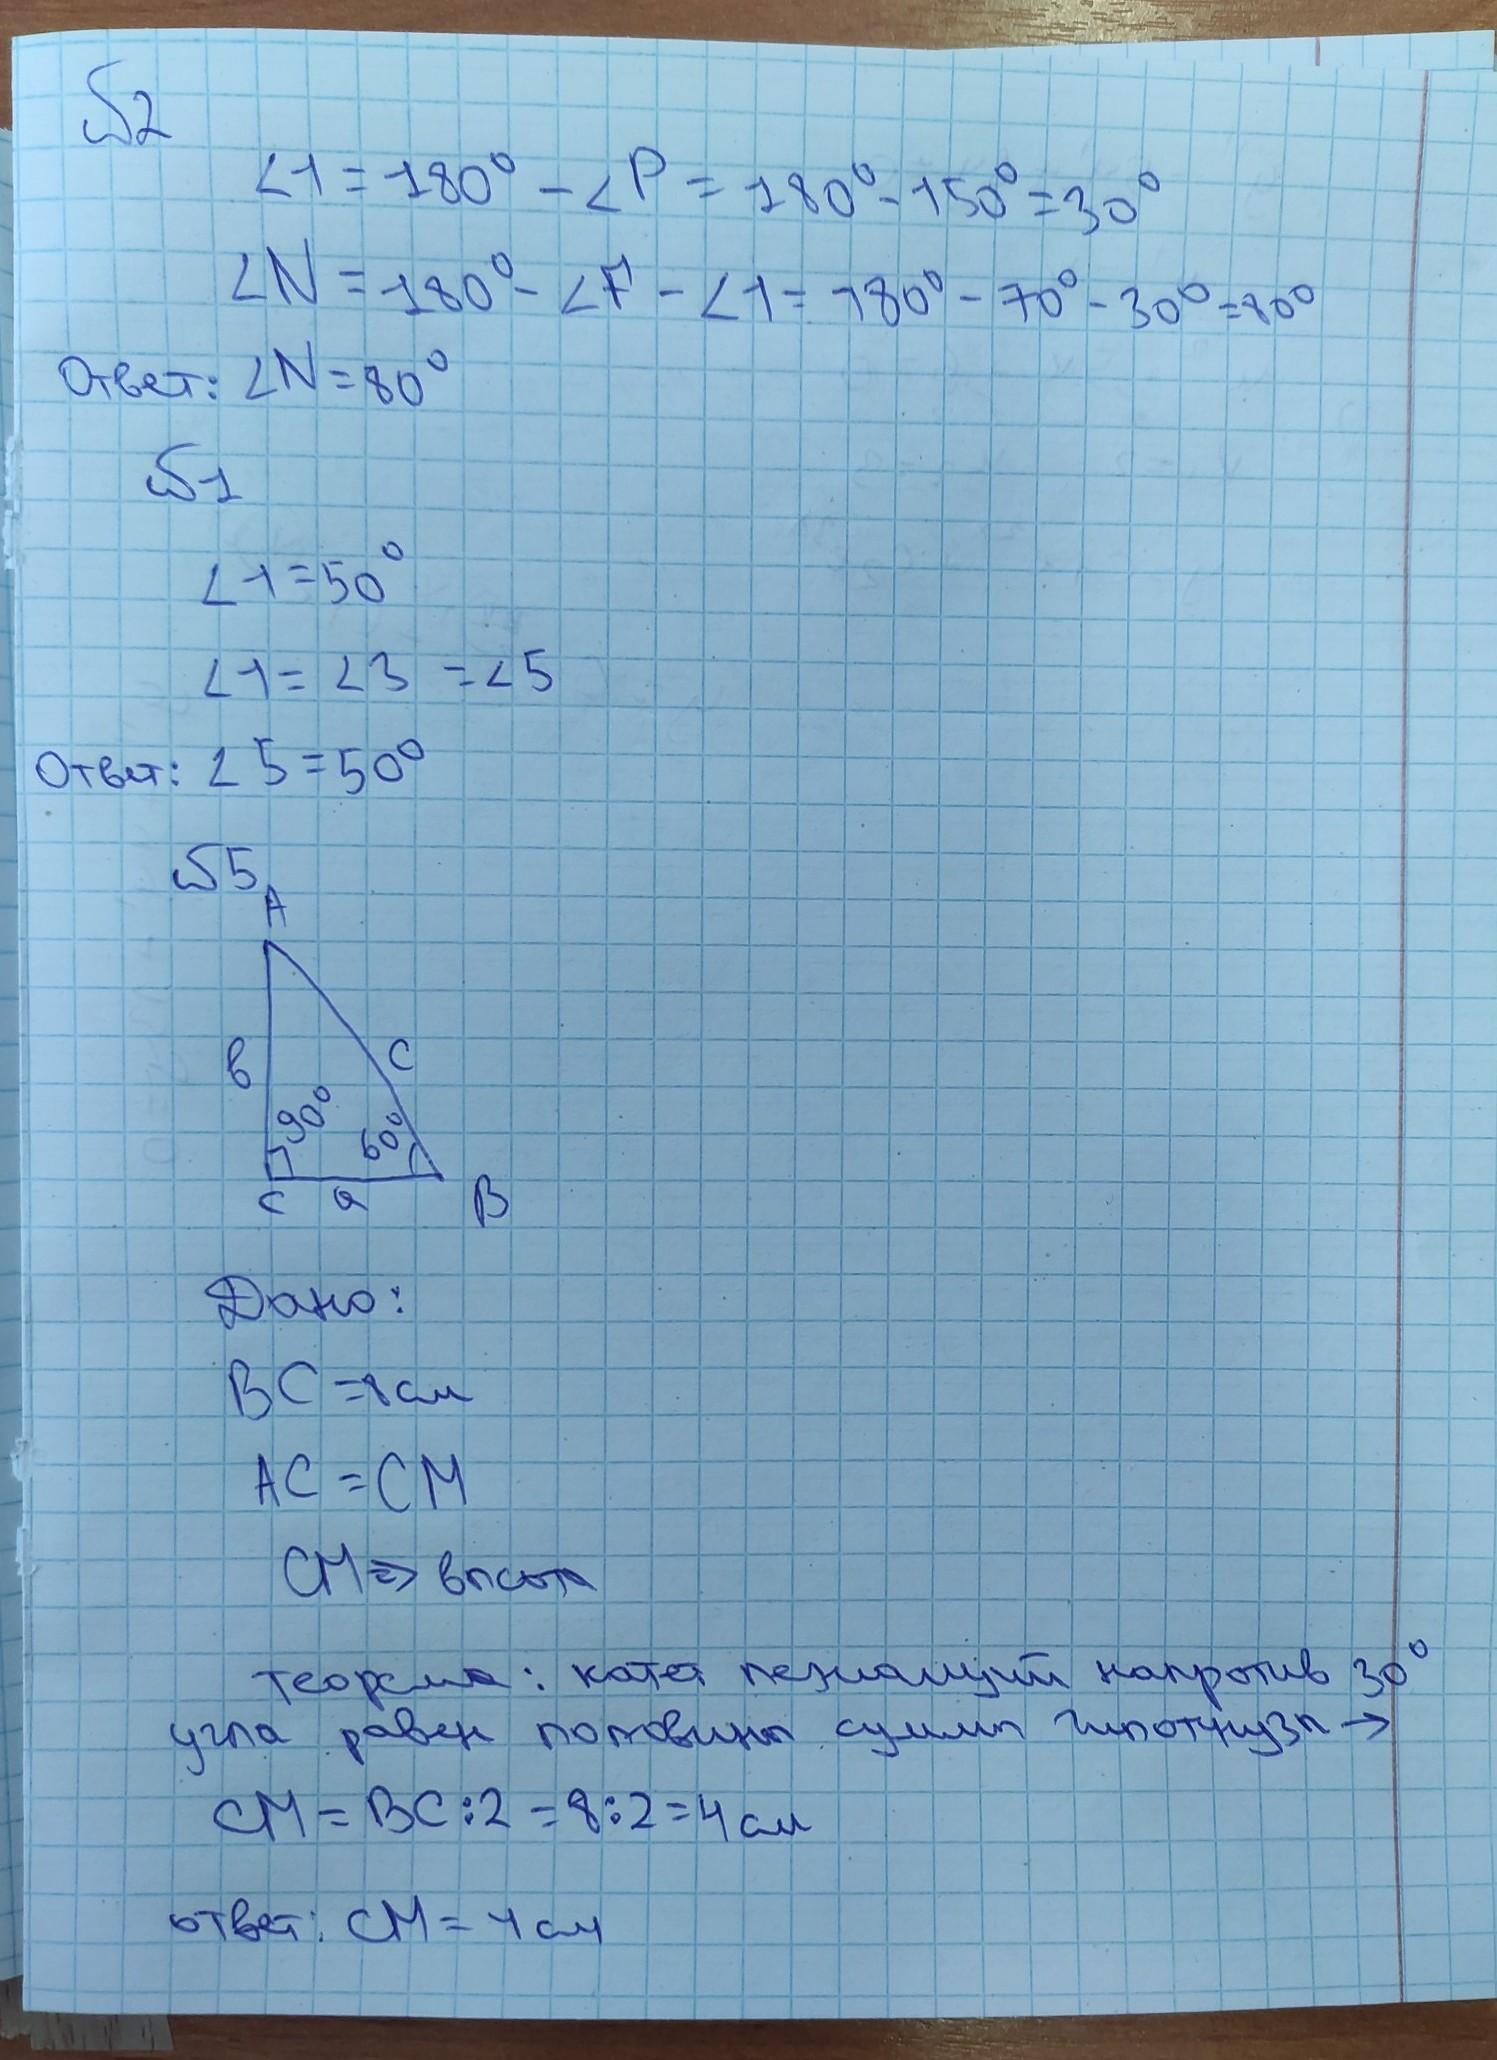 №2
∠1 = 180° - ∠P = 180° - 150° = 30°
∠N = 180° - ∠F - ∠1 = 180° - 70° - 30° = 80°
Ответ: ∠N = 80°
№1
∠1 = 50°
∠1 = ∠3 = ∠5
Ответ: ∠5 = 50°
№5
A
в
c
90°
60°
C
a
B
Дано:
BC = 8 см
AC = CM
CM => высота
теорема: катет лежащий напротив 30°
угла равен половины суммы гипотнузы →
CM = BC : 2 = 8 : 2 = 4 см
ответ: CM = 4 см